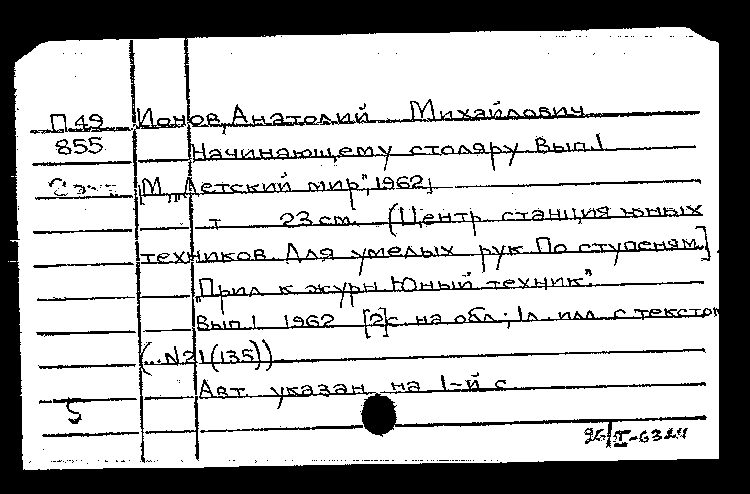 П49 Ионов, Анатолий Михайлович
855 Начинающему столяру Вып.1
М., „Детский мир", 1962,
т 23 см. (Центр. станция юных
техников. Для умелых рук. По ступеням.].
„Прил. к журн. Юный техник".
Вып.1 1962 [2]с. на обл.; 1л. илл. с текстом
(...N21(135))
Авт. указан на 1-й с
5